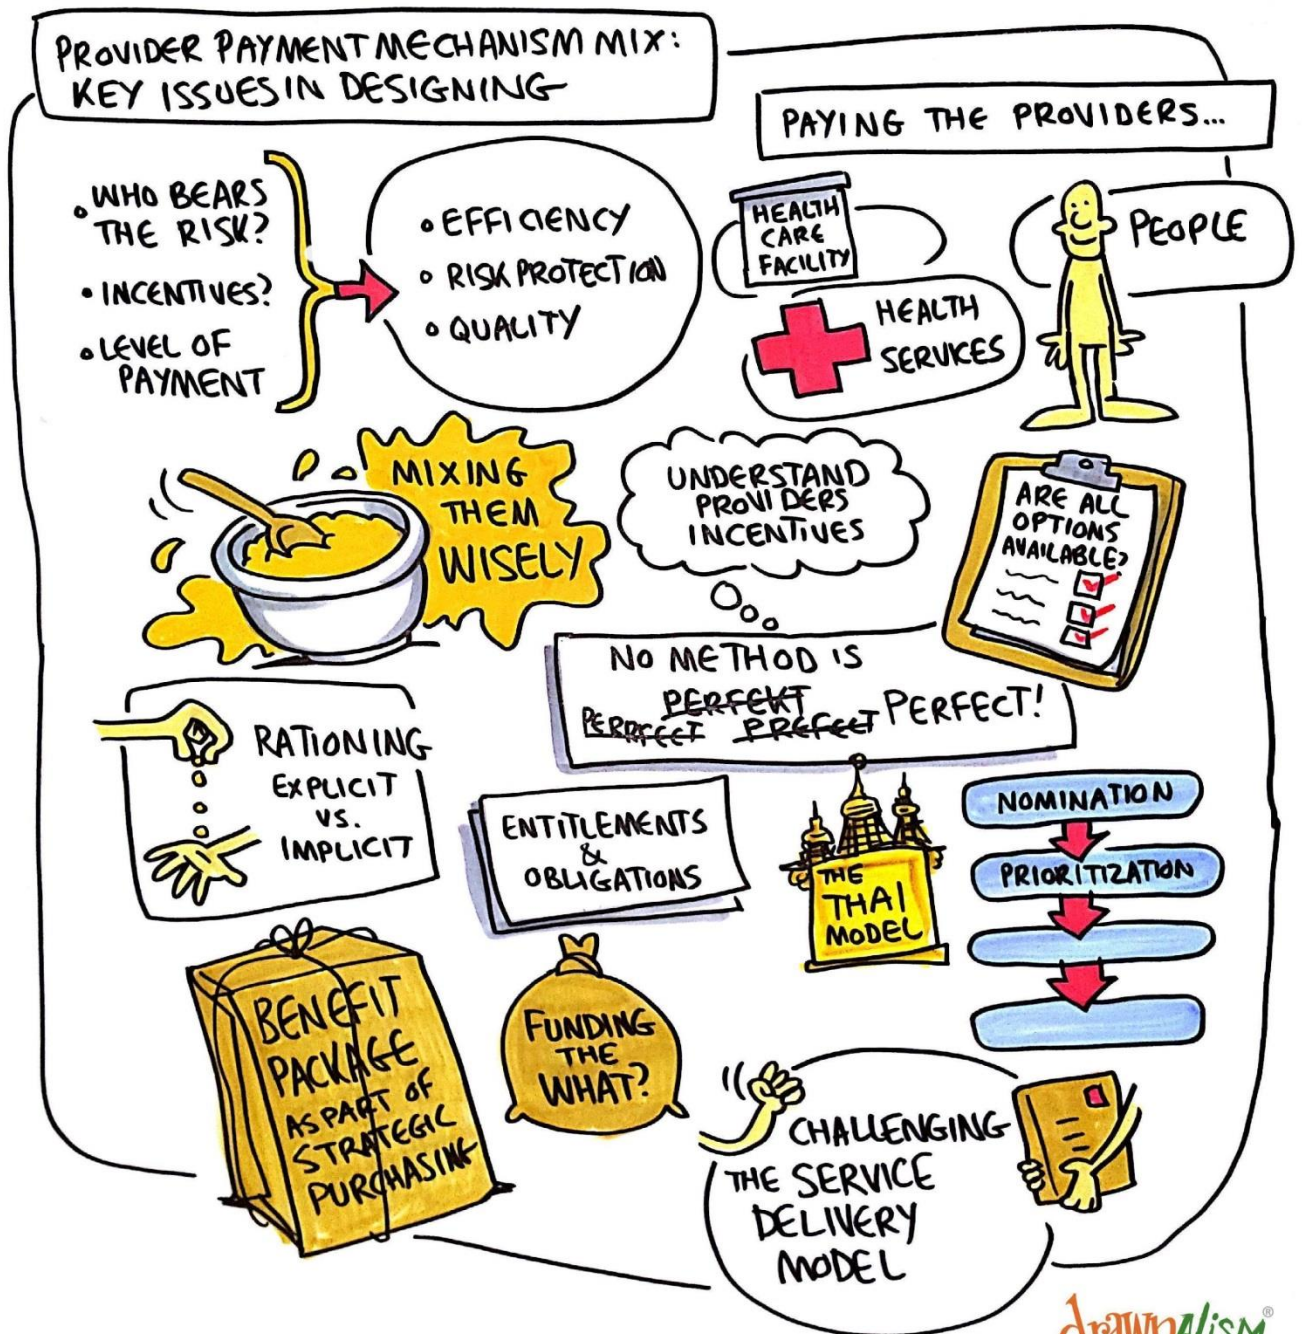 PROVIDER PAYMENT MECHANISM MIX:
KEY ISSUES IN DESIGNING
PAYING THE PROVIDERS...
• WHO BEARS
THE RISK?
• INCENTIVES?
• LEVEL OF
PAYMENT
• EFFICIENCY
• RISK PROTECTION
• QUALITY
HEALTH
CARE
FACILITY
PEOPLE
HEALTH
SERVICES
MIXING
THEM
WISELY
UNDERSTAND
PROVIDERS
INCENTIVES
ARE ALL
OPTIONS
AVAILABLE?
NO METHOD IS
PERFEKT
PERRFECT PREFECT PERFECT!
RATIONING
EXPLICIT
VS.
IMPLICIT
ENTITLEMENTS
&
OBLIGATIONS
THE
THAI
MODEL
NOMINATION
PRIORITIZATION
BENEFIT
PACKAGE
AS PART OF
STRATEGIC
PURCHASING
FUNDING
THE
WHAT?
CHALLENGING
THE SERVICE
DELIVERY
MODEL
drawnalism®